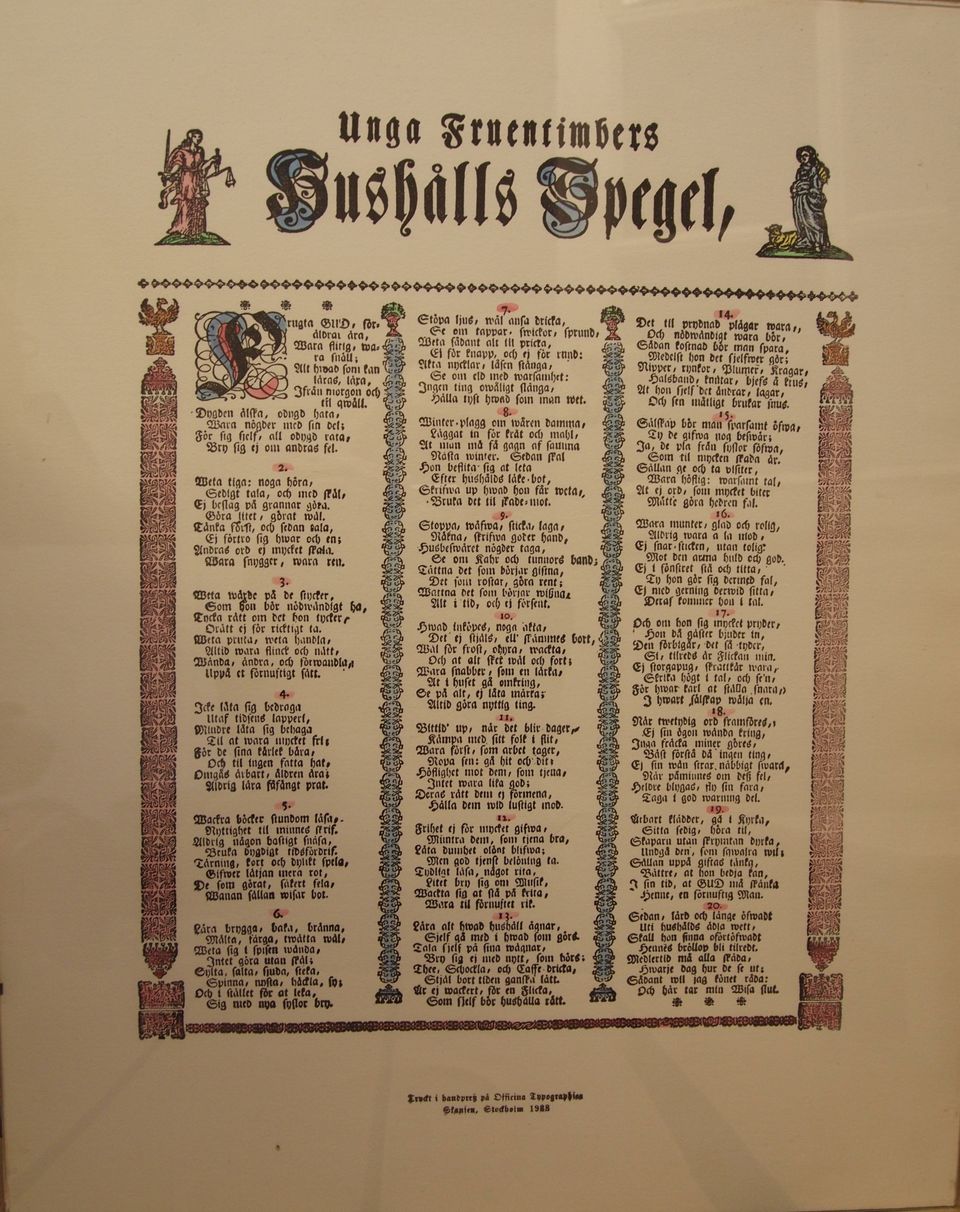 Unga Fruentimbers
Hushålls Spegel,
Frugta GUD, för-
äldrar ära,
Wara flitig, wa-
ra snäll;
Alt hwad som kan
läras, lära,
Ifrån morgon och
til qwäll.
Dygden älska, odygd hata,
Wara nögder med sin del;
För sig sjelf, all odygd rata,
Bry sig ej om andras fel.
2.
Weta tiga: noga höra,
Sedigt tala, och med skäl,
Ej beslag på grannar göra.
Göra litet, görat wäl.
Tänka först, och sedan tala,
Ej förtro sig hwar och en;
Andras ord ej mycket skala.
Wara snygger, wara ren.
3.
Weta wärde på de stycker,
Som hon bör nödwändigt ha,
Tycka rätt om det hon tycker,
Orätt ej för ricktigt ta.
Weta pruta, weta handla,
Altid wara flinck och nätt,
Wända, ändra, och förwandla,
Uppå et förnuftigt sätt.
4.
Icke låta sig bedraga
Utaf tidsens lapperi,
Mindre låta sig behaga
Til at wara mycket fri;
För de sina kärlek bära,
Och til ingen fatta hat,
Omgås ärbart, åldren ära;
Aldrig lära fåfängt prat.
5.
Wackra böcker stundom läsa,
Nyttighet til minnes skrif.
Aldrig någon hastigt snäsa,
Bruka dygdigt tidsfördrif.
Tärning, kort och dylikt spela,
Gifwer lätjan mera rot,
De som görat, säkert fela,
Wanan sällan wisar bot.
6.
Lära brygga, baka, bränna,
Mälta, färga, twätta wäl,
Weta sig i spisen wända,
Intet göra utan skäl;
Sylta, salta, sjuda, steka,
Spinna, nysta, häckla, sy;
Och i stället för at leka,
Sig med nya sysslor bry.
7.
Stöpa ljus, wäl ansa dricka,
Se om tappar, swickor, sprund,
Weta sådant alt til pricka,
Ej för knapp, och ej för rund:
Akta nycklar, låsen stänga,
Se om eld med warsamhet:
Ingen ting owåligt slänga,
Hålla tyst hwad som man wet.
8.
Winter-plagg om wåren damma,
Läggat in för kråt och mahl,
At man må få gagn af samma
Nästa winter. Sedan skal
Hon beflita sig at leta
Efter hushålds läke-bot,
Skrifwa up hwad hon får weta,
Bruka det til skade-mot.
9.
Stoppa, wäfwa, sticka, laga,
Räkna, skrifwa goder hand,
Husbeswäret nögder taga,
Se om Kahr och tunnors band;
Tättna det som börjar gistna,
Det som rostar, göra rent;
Wattna det som börjar wißna,
Alt i tid, och ej försent.
10.
Hwad inköpes, noga akta,
Det ej stjäls, ell' skämmes bort,
Wäl för frost, ohyra, wackta,
Och at alt sket wäl och fort;
Wara snabber, som en lärka,
At i huset gå omkring,
Se på alt, ej låta märka;
Altid göra nyttig ting.
11.
Bittid' up, när det blir dager,
Kämpa med sitt folk i flit,
Wara först, som arbet tager,
Ropa sen: gå hit och dit;
Höflighet mot dem, som tjena,
Intet wara lika god;
Deras rätt dem ej förmena,
Hålla dem wid lustigt mod.
12.
Frihet ej för mycket gifwa,
Muntra dem, som tjena bra,
Låta dumhet olönt blifwa;
Men god tjenst belöning ta.
Tydligt läsa, något rita,
Litet bry sig om Musik,
Wackta sig at stå på krita,
Wara til förnuftet rik.
13.
Lära alt hwad hushåll ägnar,
Sjelf gå med i hwad som görs.
Tala sjelf på sina wägnar,
Bry sig ej med nytt, som hörs;
Thee, Schockla, och Caffe-dricka,
Stjäl bort tiden ganska lätt.
Är ej wackert, för en Flicka,
Som sjelf bör hushålla rätt.
14.
Det til prydnad plågar wara,
Och nödwändigt wara bör,
Sådan kostnad bör man spara,
Medelst hon det sjelfwer gör;
Nipper, rynkor, Plumer, Kragar,
Halsband, knuttar, bjefs à krus,
At hon sjelf det ändrar, lagar,
Och sen måtligt brukar snus.
15.
Sälskap bör man sparsamt öfwa,
Ty de gifwa nog beswär;
Ja, de pla från sysslor söfwa,
Som til mycken skada är.
Sällan ge och ta visiter,
Wara höflig: warsamt tal,
At ej ord, som mycket biter
Måtte göra hedren fal.
16.
Wara munter, glad och rolig,
Aldrig wara a la mod,
Ej snar-sticken, utan trolig;
Mot den arma huld och god.
Ej i fönstret stå och titta,
Ty hon gör sig dermed fal,
Ej med gerning derwid sitta,
Deraf kommer hon i tal.
17.
Och om hon sig mycket pryder,
Hon då gäster bjuder in,
Den förbigår, det så tyder,
Si, tilreds är Flickan min.
Ej storgapug, skrattkär wara,
Skrika högt i tal, och se'n,
För hwar karl at ställa snara,
I hwart sälskap wälja en.
18.
När twetydig ord framföres,
Ej sin ögon wända kring,
Inga fräcka miner göres,
Bäst förstå då ingen ting,
Ej sin wän strax näbbigt swara,
När påminnes om deß fel,
Heldre blygas, fly sin fara,
Taga i god warning del.
19.
Ärbart klädder, gå i Kyrka,
Sitta sedig, höra til,
Skaparn utan skrymtan dyrka,
Undgå den, som sqwalra wil;
Sällan uppå giftas tänka,
Bättre, at hon bedja kan,
I sin tid, at GUD må skänka
Henne, en förnuftig Man.
20.
Sedan, lärd och länge öfwadt
Uti hushålds ädla wett,
Skall hon finna oförtöfwadt
Hennes bröllop bli tilredt.
Medlertid må alla skåda,
Hwarje dag hur de se ut;
Sådant wil jag könet råda:
Och här tar min Wisa slut.
Tryckt i handpreß på Officina Typographica
Skansen, Stockholm 1988